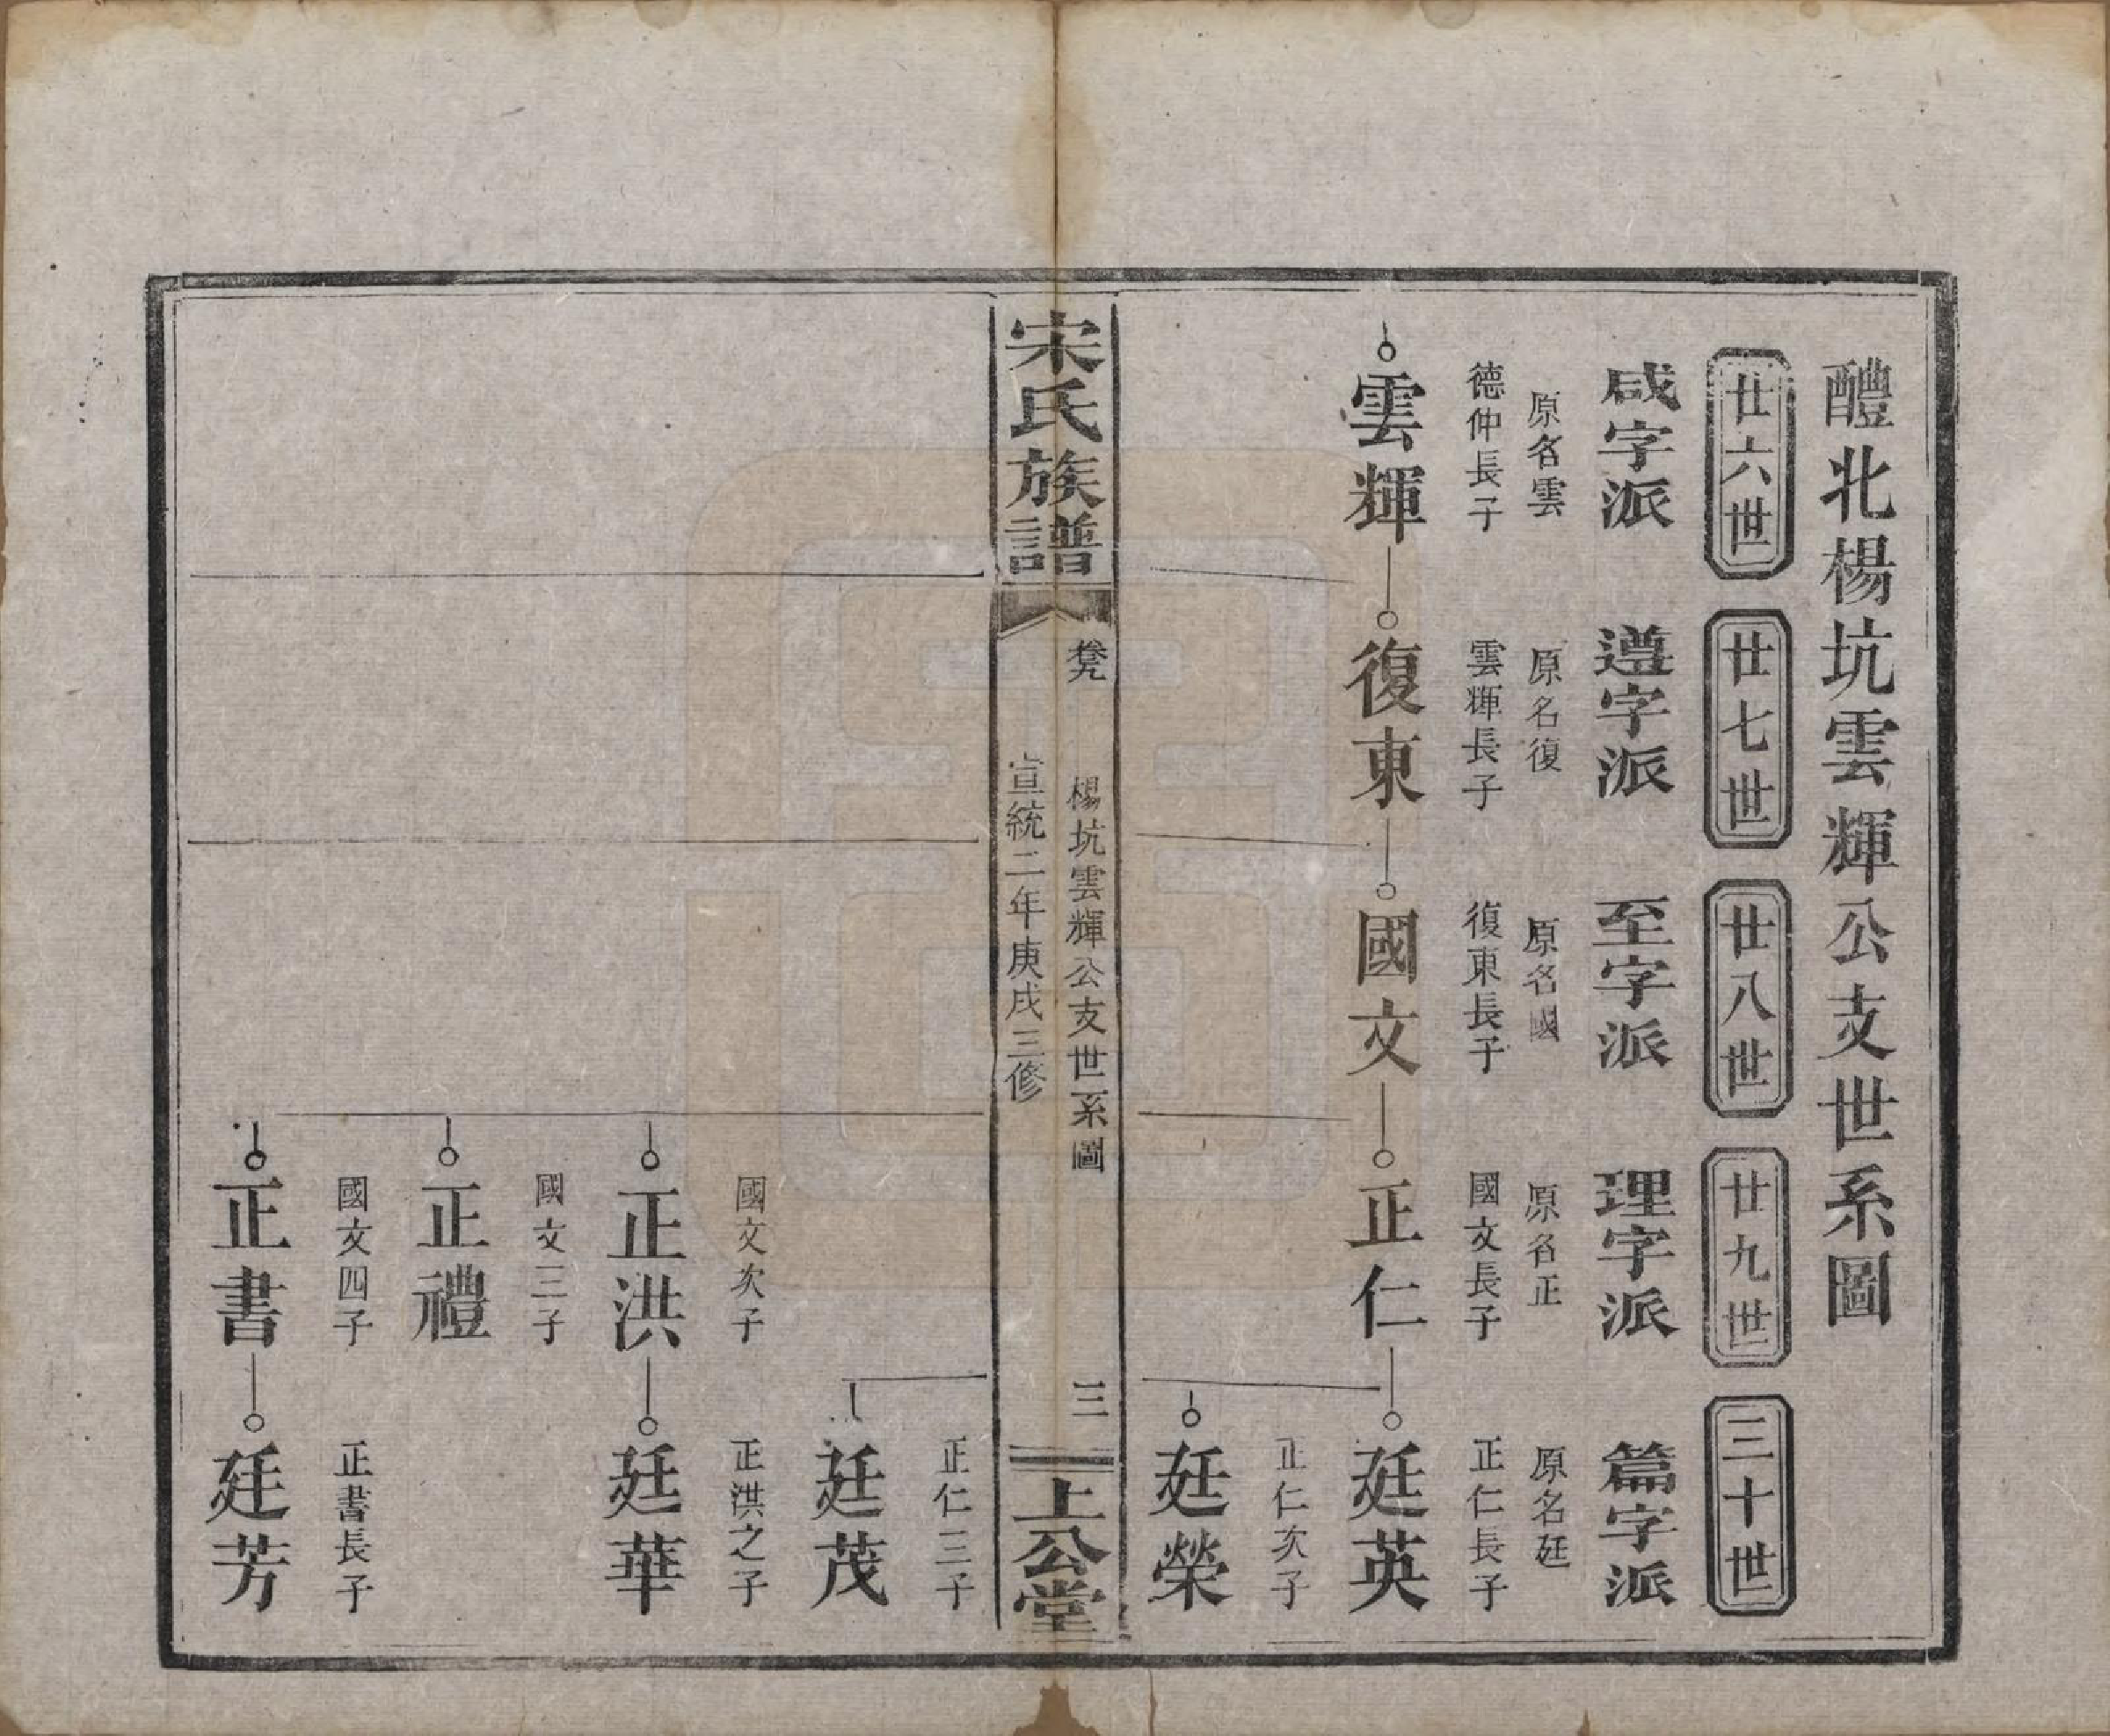 醴北楊坑雲輝公支世系圖
廿六世
廿七世
廿八世
廿九世
三十世
咸字派
遵字派
至字派
理字派
篇字派
原名雲
原名復
原名國
原名正
原名廷
德仲長子
雲輝長子
復東長子
國文長子
正仁長子
雲輝
復東
國文
正仁
廷英
正仁次子
廷榮
宋氏族譜
卷九
楊坑雲輝公支世系圖
三
宣統二年庚戌三修
上公堂
正仁三子
廷茂
國文次子
正洪之子
正洪
廷華
國文三子
正禮
國文四子
正書長子
正書
廷芳